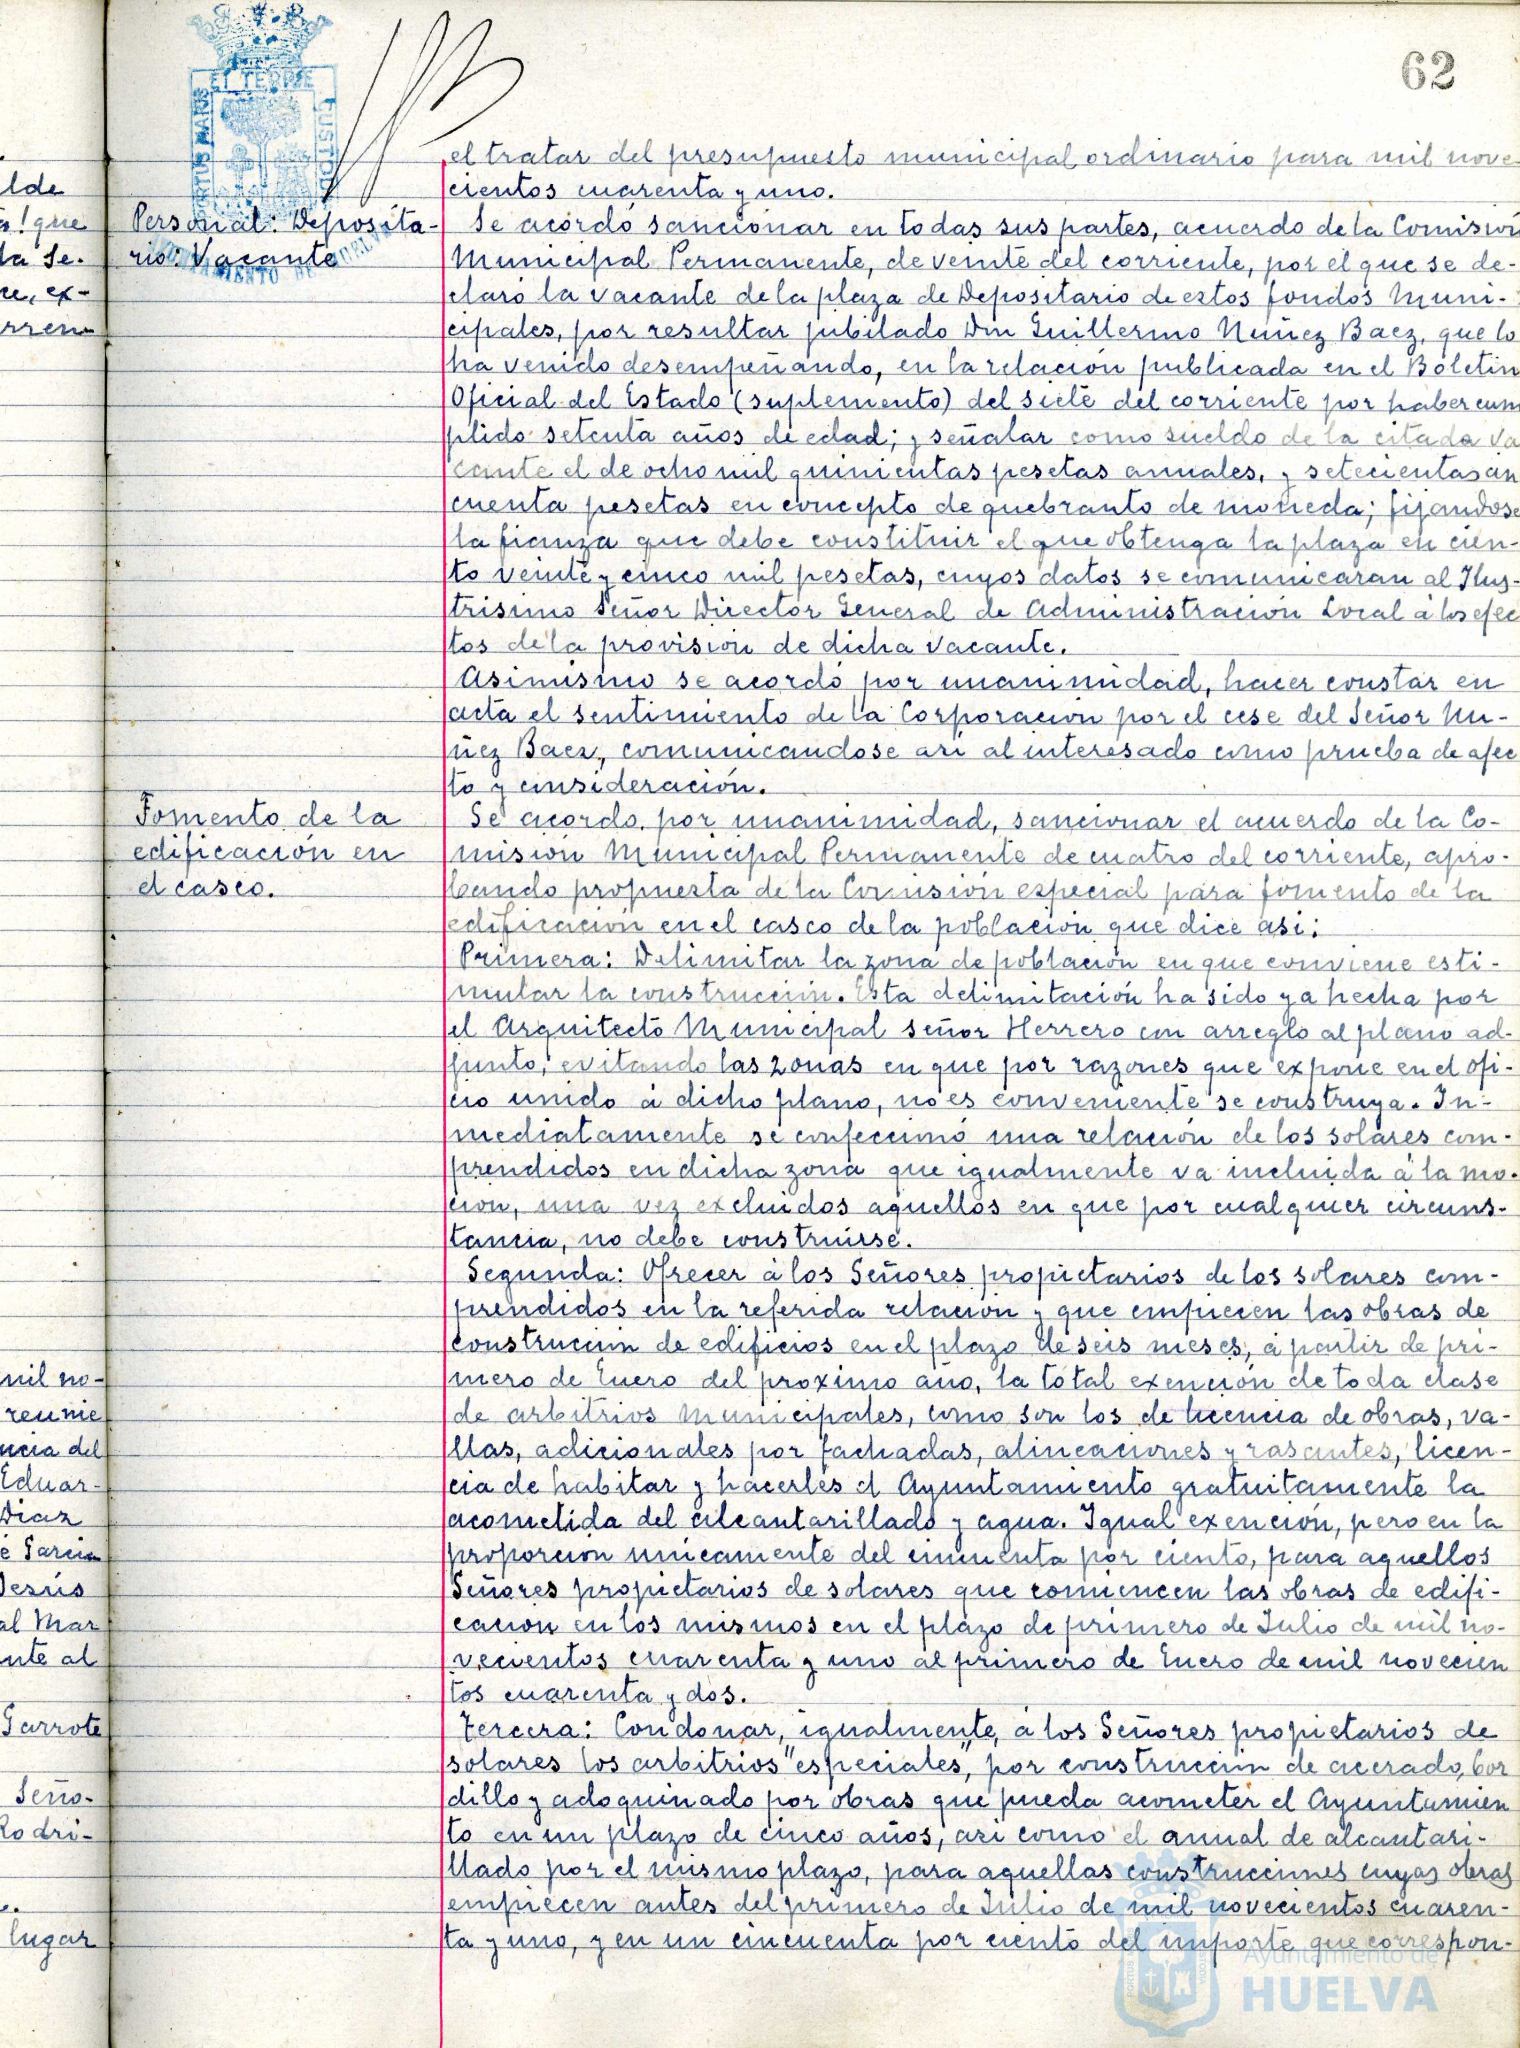 62
el tratar del presupuesto municipal ordinario para mil nove-
cientos cuarenta y uno.
Personal: Deposita-
rio: Vacante
Se acordó sancionar en todas sus partes, acuerdo de la Comisión
Municipal Permanente, de veinte del corriente, por el que se de-
claró la vacante de la plaza de Depositario de estos fondos Muni-
cipales, por resultar jubilado Don Guillermo Nuñez Baez, que lo
ha venido desempeñando, en la relación publicada en el Boletin
Oficial del Estado (suplemento) del siete del corriente por haber cum
plido setenta años de edad; y señalar como sueldo de la citada va
cante el de ocho mil quinientas pesetas anuales, y setecientas cin
cuenta pesetas en concepto de quebranto de moneda; fijandose
la fianza que debe constituir el que obtenga la plaza en cien-
to veinte y cinco mil pesetas, cuyos datos se comunicaran al Ilus-
trisimo Señor Director General de Administración Local á los efec
tos de la provisión de dicha vacante.
Asimismo se acordó por unanimidad, hacer constar en
acta el sentimiento de la Corporación por el cese del Señor Nu-
ñez Baez, comunicandose asi al interesado como prueba de afec
to y consideración.
Fomento de la
edificación en
el casco.
Se acordo, por unanimidad, sancionar el acuerdo de la Co-
misión Municipal Permanente de cuatro del corriente, apro-
bando propuesta de la Comisión especial para fomento de la
edificación en el casco de la población que dice asi:
Primera: Delimitar la zona de población en que conviene esti-
mular la construcción. Esta delimitación ha sido ya hecha por
el Arquitecto Municipal señor Herrero con arreglo al plano ad-
junto, evitando las zonas en que por razones que expone en el ofi-
cio unido á dicho plano, no es conveniente se construya. In-
mediatamente se confeccionó una relación de los solares com-
prendidos en dicha zona que igualmente va incluida á la mo-
cion, una vez excluidos aquellos en que por cualquier circuns-
tancia, no debe construirse.
Segunda: Ofrecer á los Señores propietarios de los solares com-
prendidos en la referida relación y que empiecen las obras de
construccion de edificios en el plazo de seis meses, á partir de pri-
mero de Enero del proximo año, la total exención de toda clase
de arbitrios Municipales, como son los de licencia de obras, va-
llas, adicionales por fachadas, alineaciones y rasantes, licen-
cia de habitar y hacerles el Ayuntamiento gratuitamente la
acometida del alcantarillado y agua. Igual exención, pero en la
proporcion unicamente del cincuenta por ciento, para aquellos
Señores propietarios de solares que comiencen las obras de edifi-
cacion en los mismos en el plazo de primero de Julio de mil no-
vecientos cuarenta y uno al primero de Enero de mil novecien
tos cuarenta y dos.
Tercera: Condonar, igualmente, á los Señores propietarios de
solares los arbitrios "especiales", por construccion de acerado, bor
dillo y adoquinado por obras que pueda acometer el Ayuntamien
to en un plazo de cinco años, asi como el anual de alcantari-
llado por el mismo plazo, para aquellas construcciones cuyas obras
empiecen antes del primero de Julio de mil novecientos cuaren-
ta y uno, y en un cincuenta por ciento del importe que correspon-
Ayuntamiento de
HUELVA
lde
que
la Se-
ex-
mil no-
reunie
ncia del
Eduar-
Diaz
Garcia
Jesús
al Mar
nte al
Garrote
Seño-
Rodri-
lugar